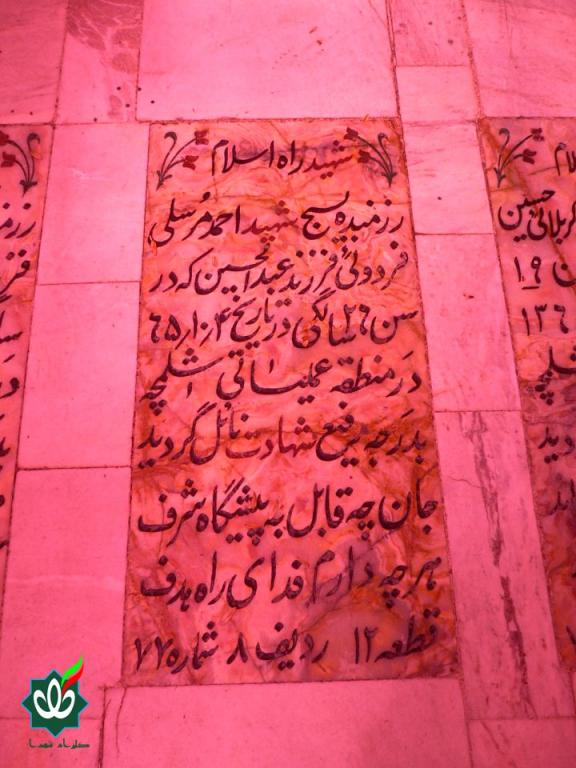 شهید راه اسلام
رزمنده بسیج شهید احمد مرسلی
فردوئی فرزند عبدالحسین که در
سن ۲۶ سالگی در تاریخ ۶۵/۱۰/۴
در منطقه عملیاتی شلمچه
بدرجه رفیع شهادت نائل گردید
جان چه قابل به پیشگاه شرف
هرچه دارم فدای راه هدف
قطعه ۱۲ ردیف ۸ شماره ۷۷
کربلائی حسین
۱۹
۱۳۶
گلزار شهدا